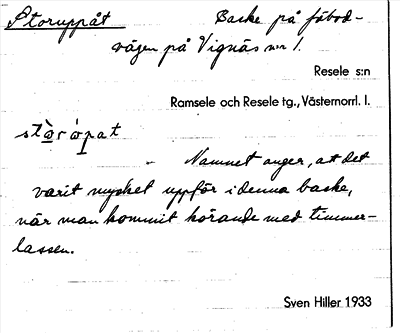 Storuppåt Backe på fäbod-
vägen på Vignäs nr 1.
Resele s:n
Ramsele och Resele tg., Västernorrl. l.
Namnet anger, at det
varit mycket uppför i denna backe,
när man kommit körande med timmer-
lassen.
Sven Hiller 1933